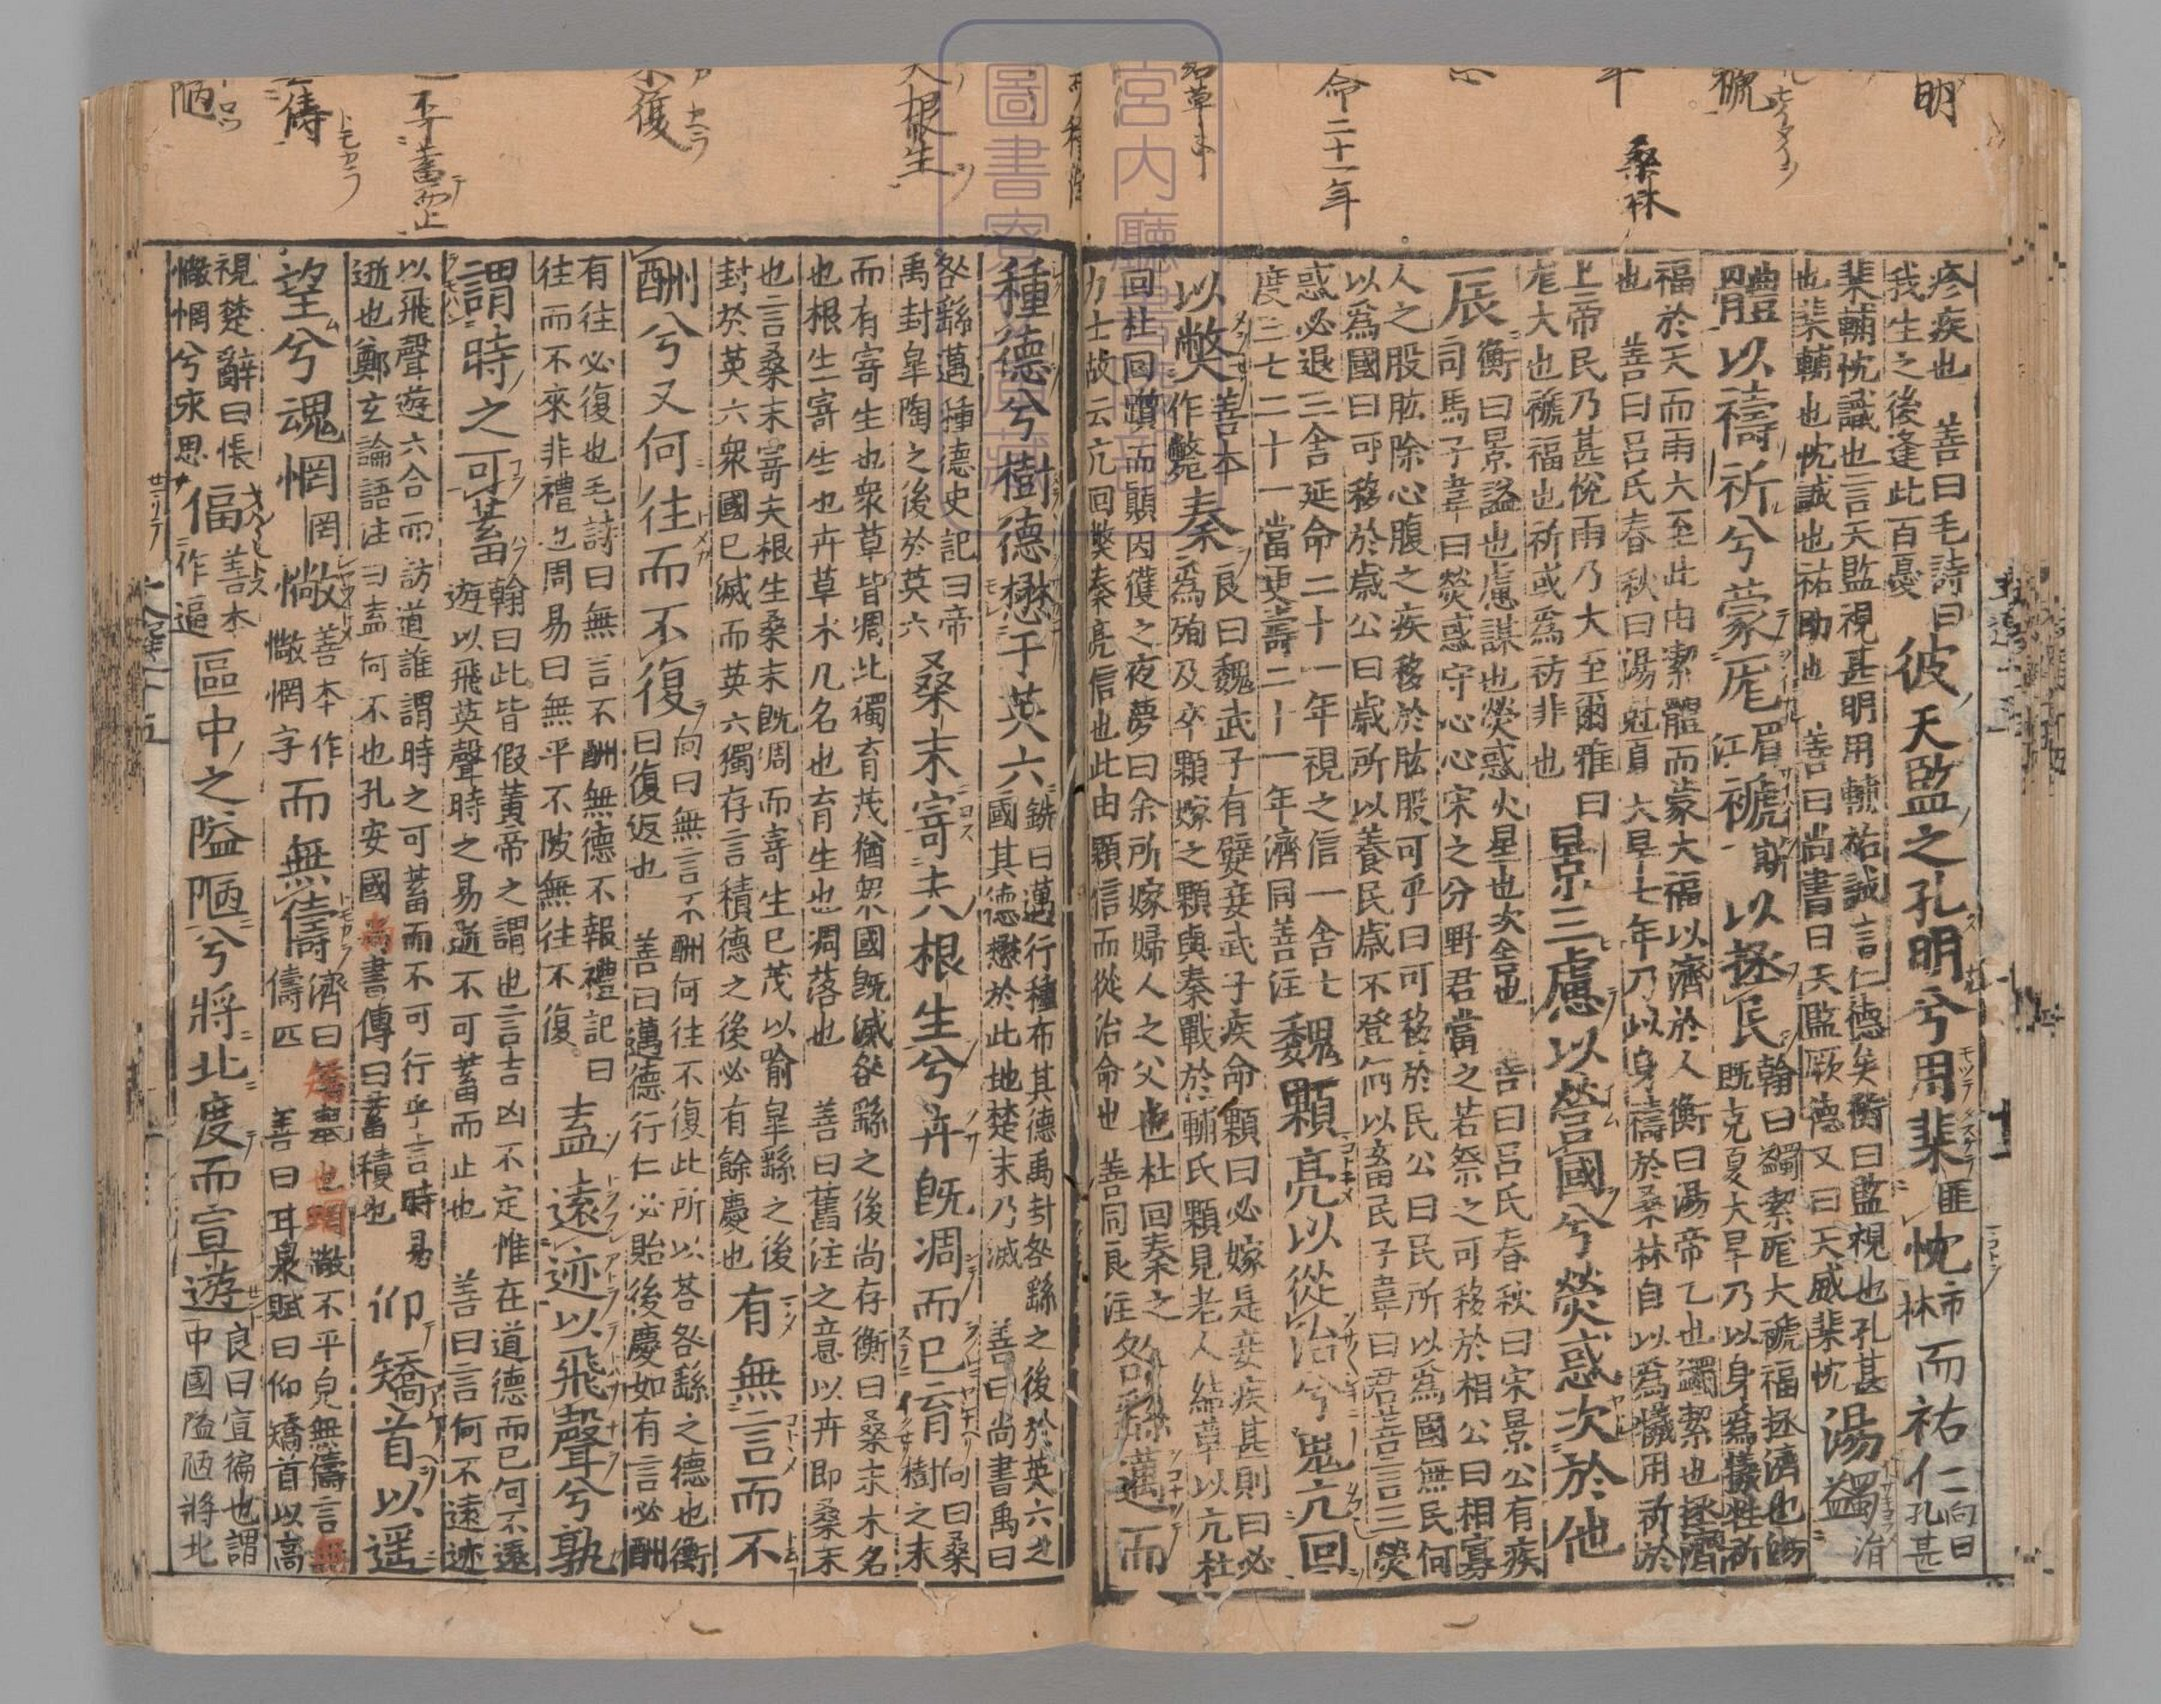 明
禠
桑林
命二十一年
疹疾也　善曰毛詩曰
我生之後逢此百憂
彼天監之孔明兮用棐匪忱柿林而祐仁向曰孔甚
棐輔忱誠也言天監視甚明用輔祐誠言仁德矣衡曰監視也孔甚
也棐輔也忱誠也祐助也　善曰尚書曰天監厥德又曰天威棐忱
湯蠲涓
體以禱祈兮蒙厖眉江禠斯以拯民
翰曰蠲絜厖大禠福拯濟也湯
既克夏大旱乃以身爲犧牲祈
福於天而雨大至此由潔體而蒙大福以濟於人衡曰湯帝乙也蠲絜也拯濟
也　善曰呂氏春秋曰湯尅夏大旱七年乃以身禱於桑林自以爲犧用祈於
上帝民乃甚悅雨乃大至爾雅曰
厖大也禠福也祈或爲祊非也
景三慮以營國兮熒惑次於他
辰
衡曰景謚也慮謀也熒惑火星也次舍也　善曰呂氏春秋曰宋景公有疾
司馬子韋曰熒惑守心心宋之分野君當之若祭之可移於相公曰相寡
人之股肱除心腹之疾移於肱股可乎曰可移於民公曰民所以爲國無民何
以爲國曰可移於歲公曰歲所以養民歲不登何以畜民子韋曰君善言三熒
惑必退三舍延命二十一年視之信一舍七
度三七二十一當更壽二十一年濟同善注
魏顆亮以從治兮鬼亢回
以獘善本作斃秦
良曰魏武子有嬖妾武子疾命顆曰必嫁是妾疾甚則曰必
爲殉及卒顆嫁之顆與秦戰於輔氏顆見老人結草以亢杜
回杜回躓而顛因獲之夜夢曰余所嫁婦人之父也杜回秦之
力士故云亢回獘秦亮信也此由顆信而從治命也　善同良注
咎繇邁而
宮内廳書陵部
圖書寮原藏
夫根生
復
不蓄而止
儔
陋
種德兮樹德懋于英六
銑曰邁行種布其德禹封咎繇之後於英六之
國其德懋於此地楚末乃滅　善曰尚書禹曰
咎繇邁種德史記曰帝
禹封皐陶之後於英六
桑末寄夫根生兮卉既凋而已育
向曰桑
樹之末
而有寄生也衆草皆凋此獨育茂猶衆國既滅咎繇之後尚存衡曰桑末木名
也根生寄生也卉草木凡名也育生也凋落也　善曰舊注之意以卉即桑末
也言桑末寄夫根生桑末既凋而寄生已茂以喻皐繇之後
封於英六衆國已滅而英六獨存言積德之後必有餘慶也
有無言而不
酬兮又何往而不復
向曰無言不酬何往不復此所以荅咎繇之德也衡
曰復返也　善曰邁德行仁必貽後慶如有言必酬
有往必復也毛詩曰無言不酬無德不報禮記曰
往而不來非禮也周易曰無平不陂無往不復
盍遠迹以飛聲兮孰
謂時之可蓄
翰曰此皆假黃帝之謂也言吉凶不定惟在道德而已何不遠
遊以飛英聲時之易逝不可蓄而止也　善曰言何不遠迹
以飛聲遊六合而訪道誰謂時之可蓄而不可行乎言時易
逝也鄭玄論語注曰盍何不也孔安國尚書傳曰蓄積也
仰矯首以遥
望兮魂惘罔惝善本作懒惘字而無儔
視楚辭曰悵
懒惘兮永思
偪善本作逼區中之隘陋兮將北度而宣遊
良曰宣徧也謂
中國隘陋將北